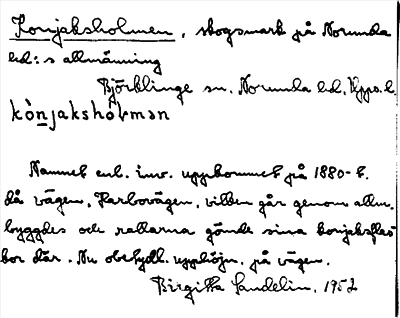 Konjaksholmen, skogsmark på Norunda
hd:s allmänning
Björklinge sn. Norunda hd. Upps. l.
kònjakshòlmən
Namnet enl. inv. uppkommet på 1880-t.
då vägen, Harbovägen, vilken går genom allm.
byggdes och rallarna gömde sina konjaksflas
kor där. Nu obetydl. upphöjn. på vägen.
Birgitta Sandelin, 1952